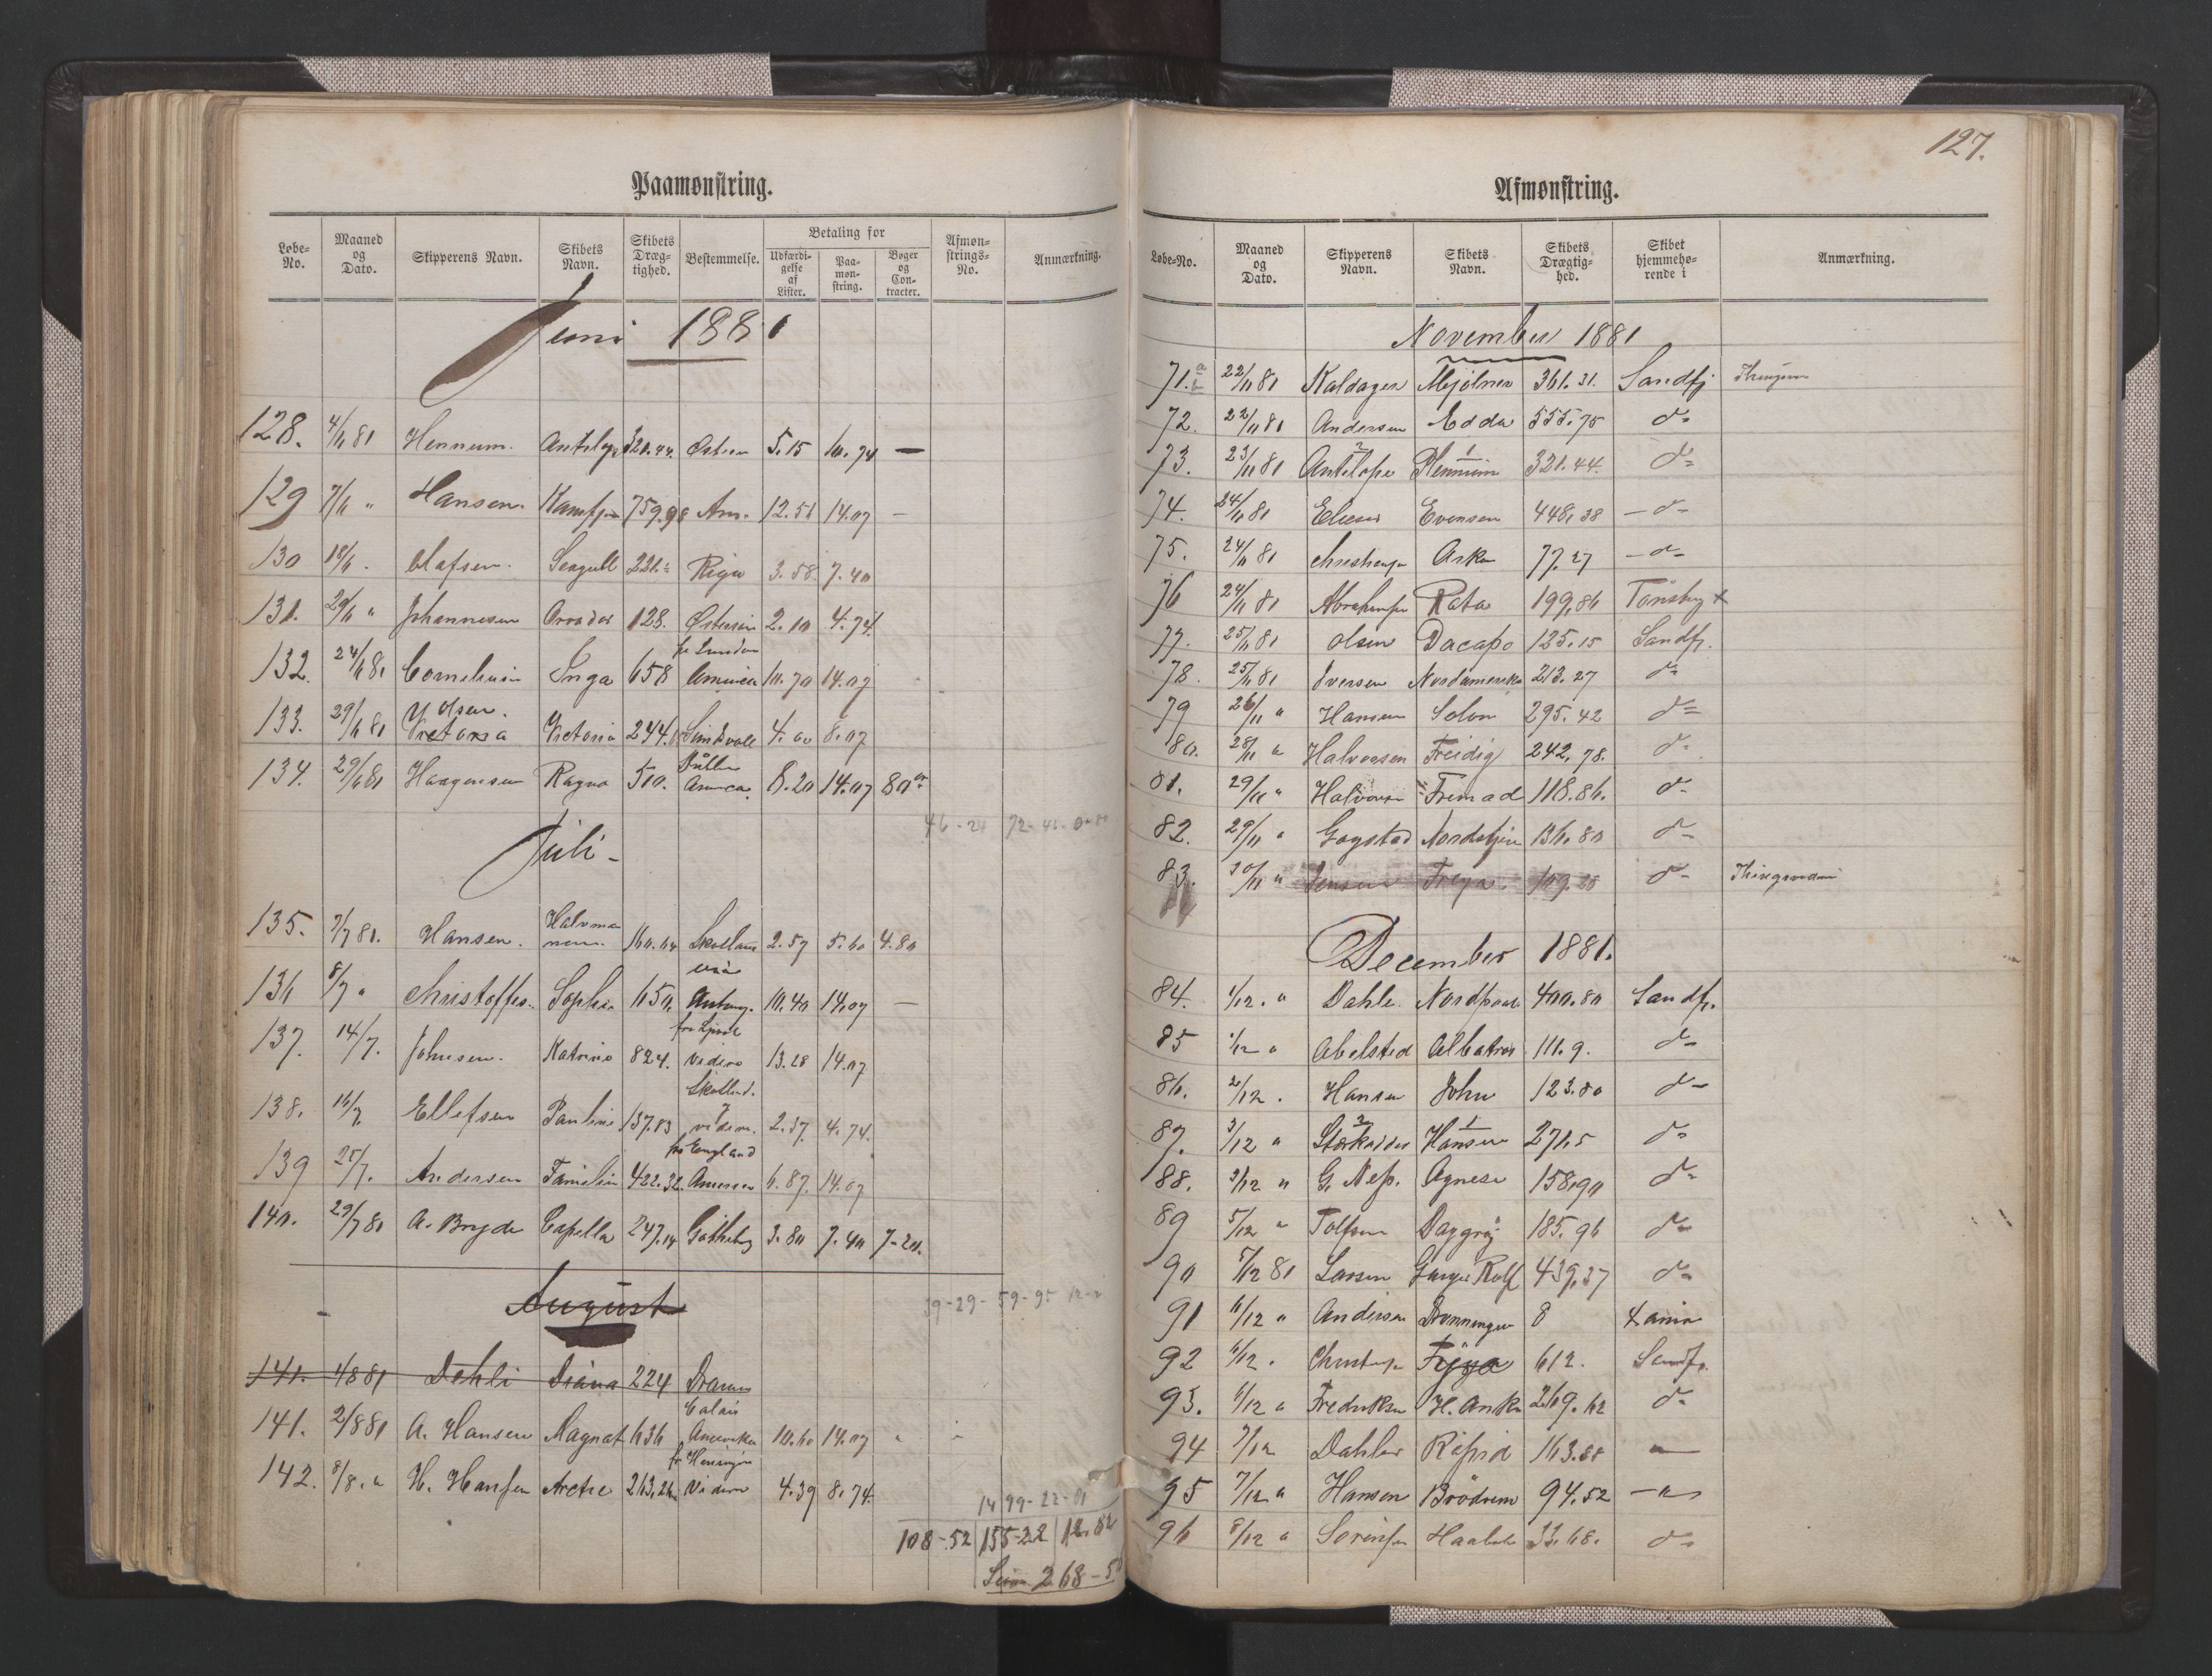 Paamønstring.
Løbe-No. Maaned og Dato. Skipperens Navn. Skibets Navn. Skibets Dræg-tighed. Bestemmelse. Betaling for Udfærdi-gelse af Lister. Paa-møn-string. Bøger og Con-tracter. Afmøn-strings-No. Anmærkning.
Juni 1881
128. 4/6 81 Hennum. Antelope 320.44. Østersøen 5.15 10.74 —
129 7/6 " Hansen. 759.98 Am. 12.51 14.07 —
130 18/6 . Olafsen. Seagull 221. Riga 3.58. 7.40
131. 20/6 " Johannesen 128. Østersøen 2.10 4.74.
132. 24/6 81 Cornelius Inga 658 America 10.70 14.07
133. 29/6 81 Y Olsen. Victoria Victoria 244. 4.00 8.07
134. 29/6 81 Haagensen Ragna 510. America. 8.20 14.07 80
46-24 72-46-0-80
Juli -
135. 7/7 81. Hansen. 160.64 2.57 5.60 4.80
136 8/7 " Christoffers. Sophie 650. 10.40 14.07 —
137. 14/7. Johnsen. Katrine 824. videre 13.28 14.07
138. 16/7. Ellefsen Pauline 137.83 Skotland. videre. 2.37. 4.74.
139 25/7. Andersen Familien 422.32. fra England America 6.87. 14.07
140. 29/7 81 A. Bryde Capella 247.14 Gøtheborg 3.80 7.40 7-20.
39-29-59-95 12-
August
141. 1/8 81 Dahli Diana 224 Dramm
141. 2/8 81 A. Hansen Magnat 636 Calais Amerika 10.60 14.07 "
142. 8/8. " H. Hansen Arctic 263.26 videre 4.39 8.74.
14 99-22-01
108-52 155-22 12.82
Sum 268-5
127.
Afmønstring.
Løbe-No. Maaned og Dato. Skipperens Navn. Skibets Navn. Skibets Drægtig-hed. Skibet hjemmehø-rende i Anmærkning.
November 1881
71. 22/11 81 Kaldager Mjølner 361.31. Sandfj
72. 22/11 81 Andersen Edda 555.75 do
73. 23/11 81 Antilope 2 Hennum 1 321.44. do
74. 24/11 81 Elieser Evensen 448.38 — do
75. 24/11 81 Christensen Aska 77.27 — do
76 24/11 81 Abrahamsen Rota 199.86 Tønsberg x
77. 25/11 81 Olsen Dacapo 125.15 Sandfj.
78. 25/11 81 Iversen Nordamerika 213.27 do
79 26/11 " Hansen Solon 295.42 do
80. 28/11 " Halvorsen Freidig 242.78. do
81. 29/11 " Halvorsen Fremad 118.86. do
82. 29/11 " Gogstad Nordstjern 136.80 do
83. 30/11 " Jensen Freya. 109.28 do
December 1881.
84. 1/12. " Dahle. Nordpool 400.80 Sandfj.
85 1/12 " Abelsted Albatros 111.9. do
86. 2/12 . Hansen John 123.80 do
87. 3/12 " Størkodder 2 Hansen 1 271.5 do
88. 3/12 " G. Neß. Agnese 158.90 do
89 5/12 " Tolfsen Daggry 185.96 do
90 5/12 81 Larsen Ganger Rolf 439.37 do
91 6/12 " Andersen Dronningen 8
92 6/12 . Christensen Freya 612. Sandfj.
93. 6/12 " Fredriksen H. Anker 269.62 do
94 7/12 Dahler Rapid 163.88 —"—
95 7/12 " Hansen Brødrene 94.52 —"—
96 8/12 " Sørensen Haabet 33.68. do